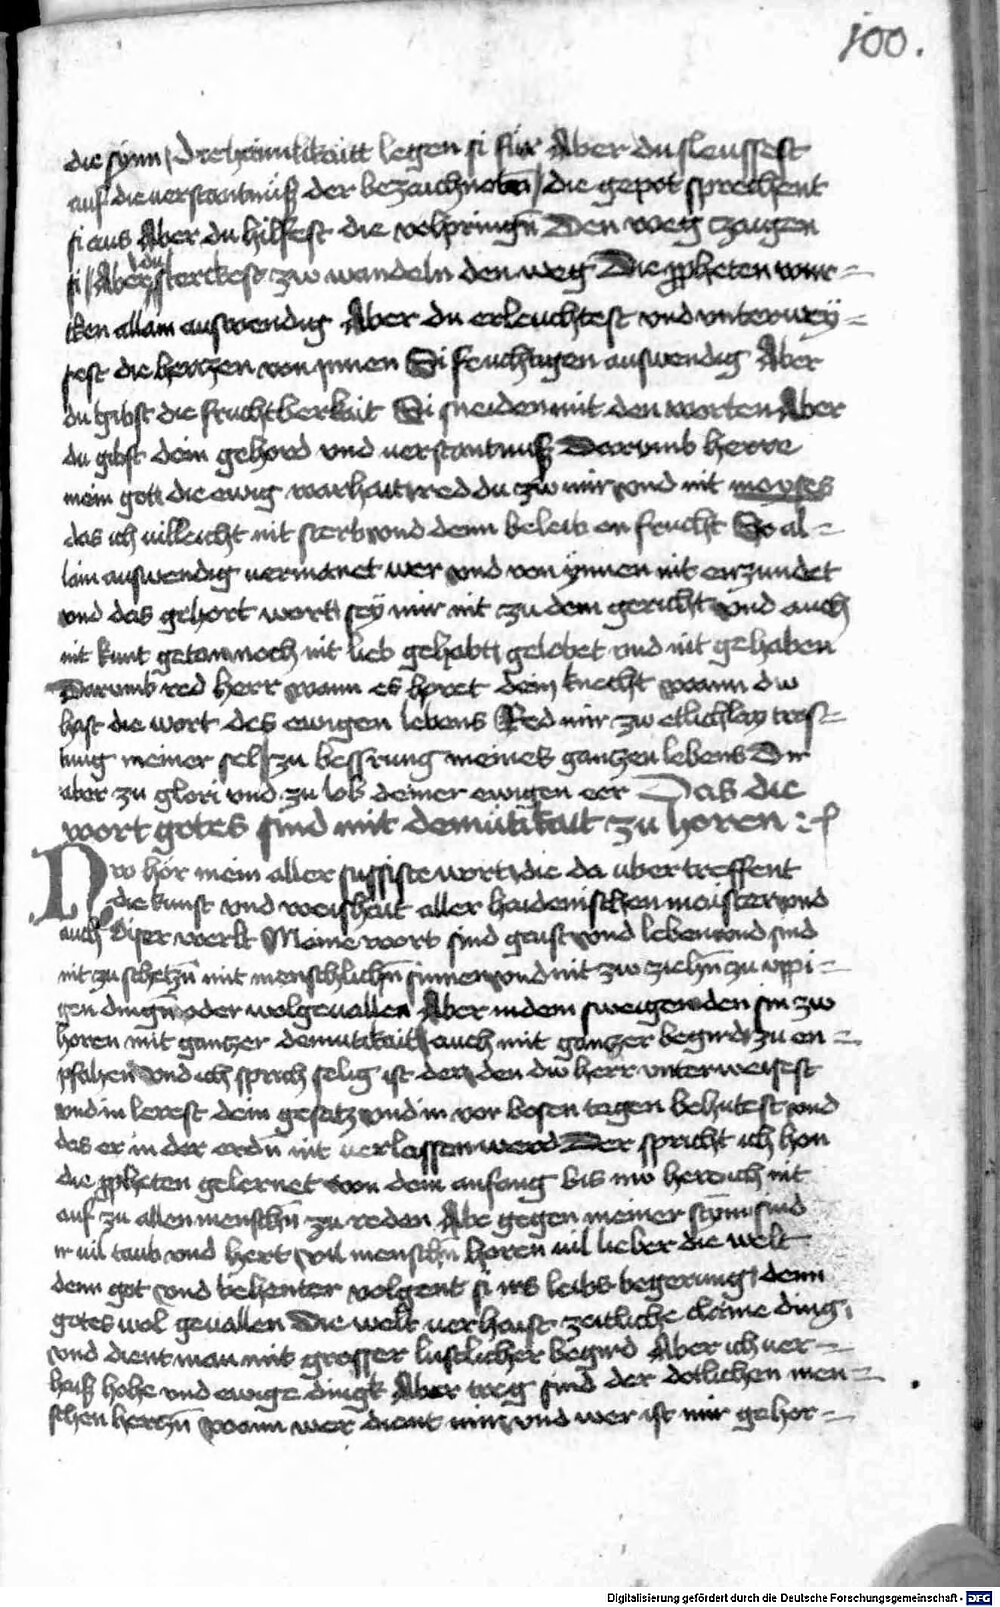 100.
die synn / Die haimlikaitt legen si für Aber du sleussest
auf die verstantnüß der bezaichnoten / die gepot sprechent
si aus Aber du hilfest die volpringen̄ Den weg zaugen
si / Aber du sterckest zw wandeln den weg Die ꝓpheten wur=
cken allain auswendig Aber du erleuchtest vnd vnterwey=
sest die hertzen von ynnen Si feuchtigen auswendig Aber
du gibst die fruchtberkait Si sneiden mit den worten Aber
du gibst dein gehord vnd verstantnuß Darvmb herre
mein gott die ewig warhait red du zw mir vnd nit moyses
das ich villeicht nit sterb vnd denn beleib on frucht So al=
lain auswendig vermanet wer vnd von ynnen nit enzundet
vnd das gehort wort sey mir nit zu dem gericht vnd auch
nit kunt getan noch nit lieb gehabt gelobet vnd nit gehaben
Darvmb red herr wann es horet dein knecht wann dw
hast die wort des ewigen lebens Red mir zw etlichlay trost=
tung meiner sel zu bessrung meines ganczen lebens Dir
aber zu glori vnd zu lob deiner ewigen eer Das die
wort gotes sind mit demütikait zu horen :
Nw hör mein aller sussiste wort die da vbertreffent
die kunst vnd weishait aller haidenischen maister vnd
auch diser werlt Meine wort sind geist vnd leben vnd sind
nit zu schetzn̄ mit menschlichn̄ sinnen vnd nit zw ziehn̄ zu vppi=
gen dingn̄ oder wolgevallen Aber in dem sweigen den sin zw
horen mit gantzer demutikait auch mit ganczer begird zu en=
pfahen vnd ich sprich selig ist der den dw herr vnterweisest
vnd in lerest dein gesatz vnd im vor bosen tagen behutest vnd
das er in der erdn̄ nit verlassen werd Der spricht ich hon
die ꝓpheten gelernet von dem anfang bis nw her ich nit
auf zu allen menschn̄ zu reden Abe gegen meiner stym sind
ir vil taub vnd hert vil menschn̄ horen vil lieber die welt
denn got vnd behenter volgent si irs leibs begerung denn
gotes wol gevallen Die welt verhaist zeitliche claine ding
vnd dient man mit grosser lustlicher begird Aber ich ver=
haiß hohe vnd ewige dingk Aber treg sind der dotlichen men=
schen hertzn̄ wann wer dient mir vnd wer ist mir gehor=
Digitalisierung gefördert durch die Deutsche Forschungsgemeinschaft - DFG